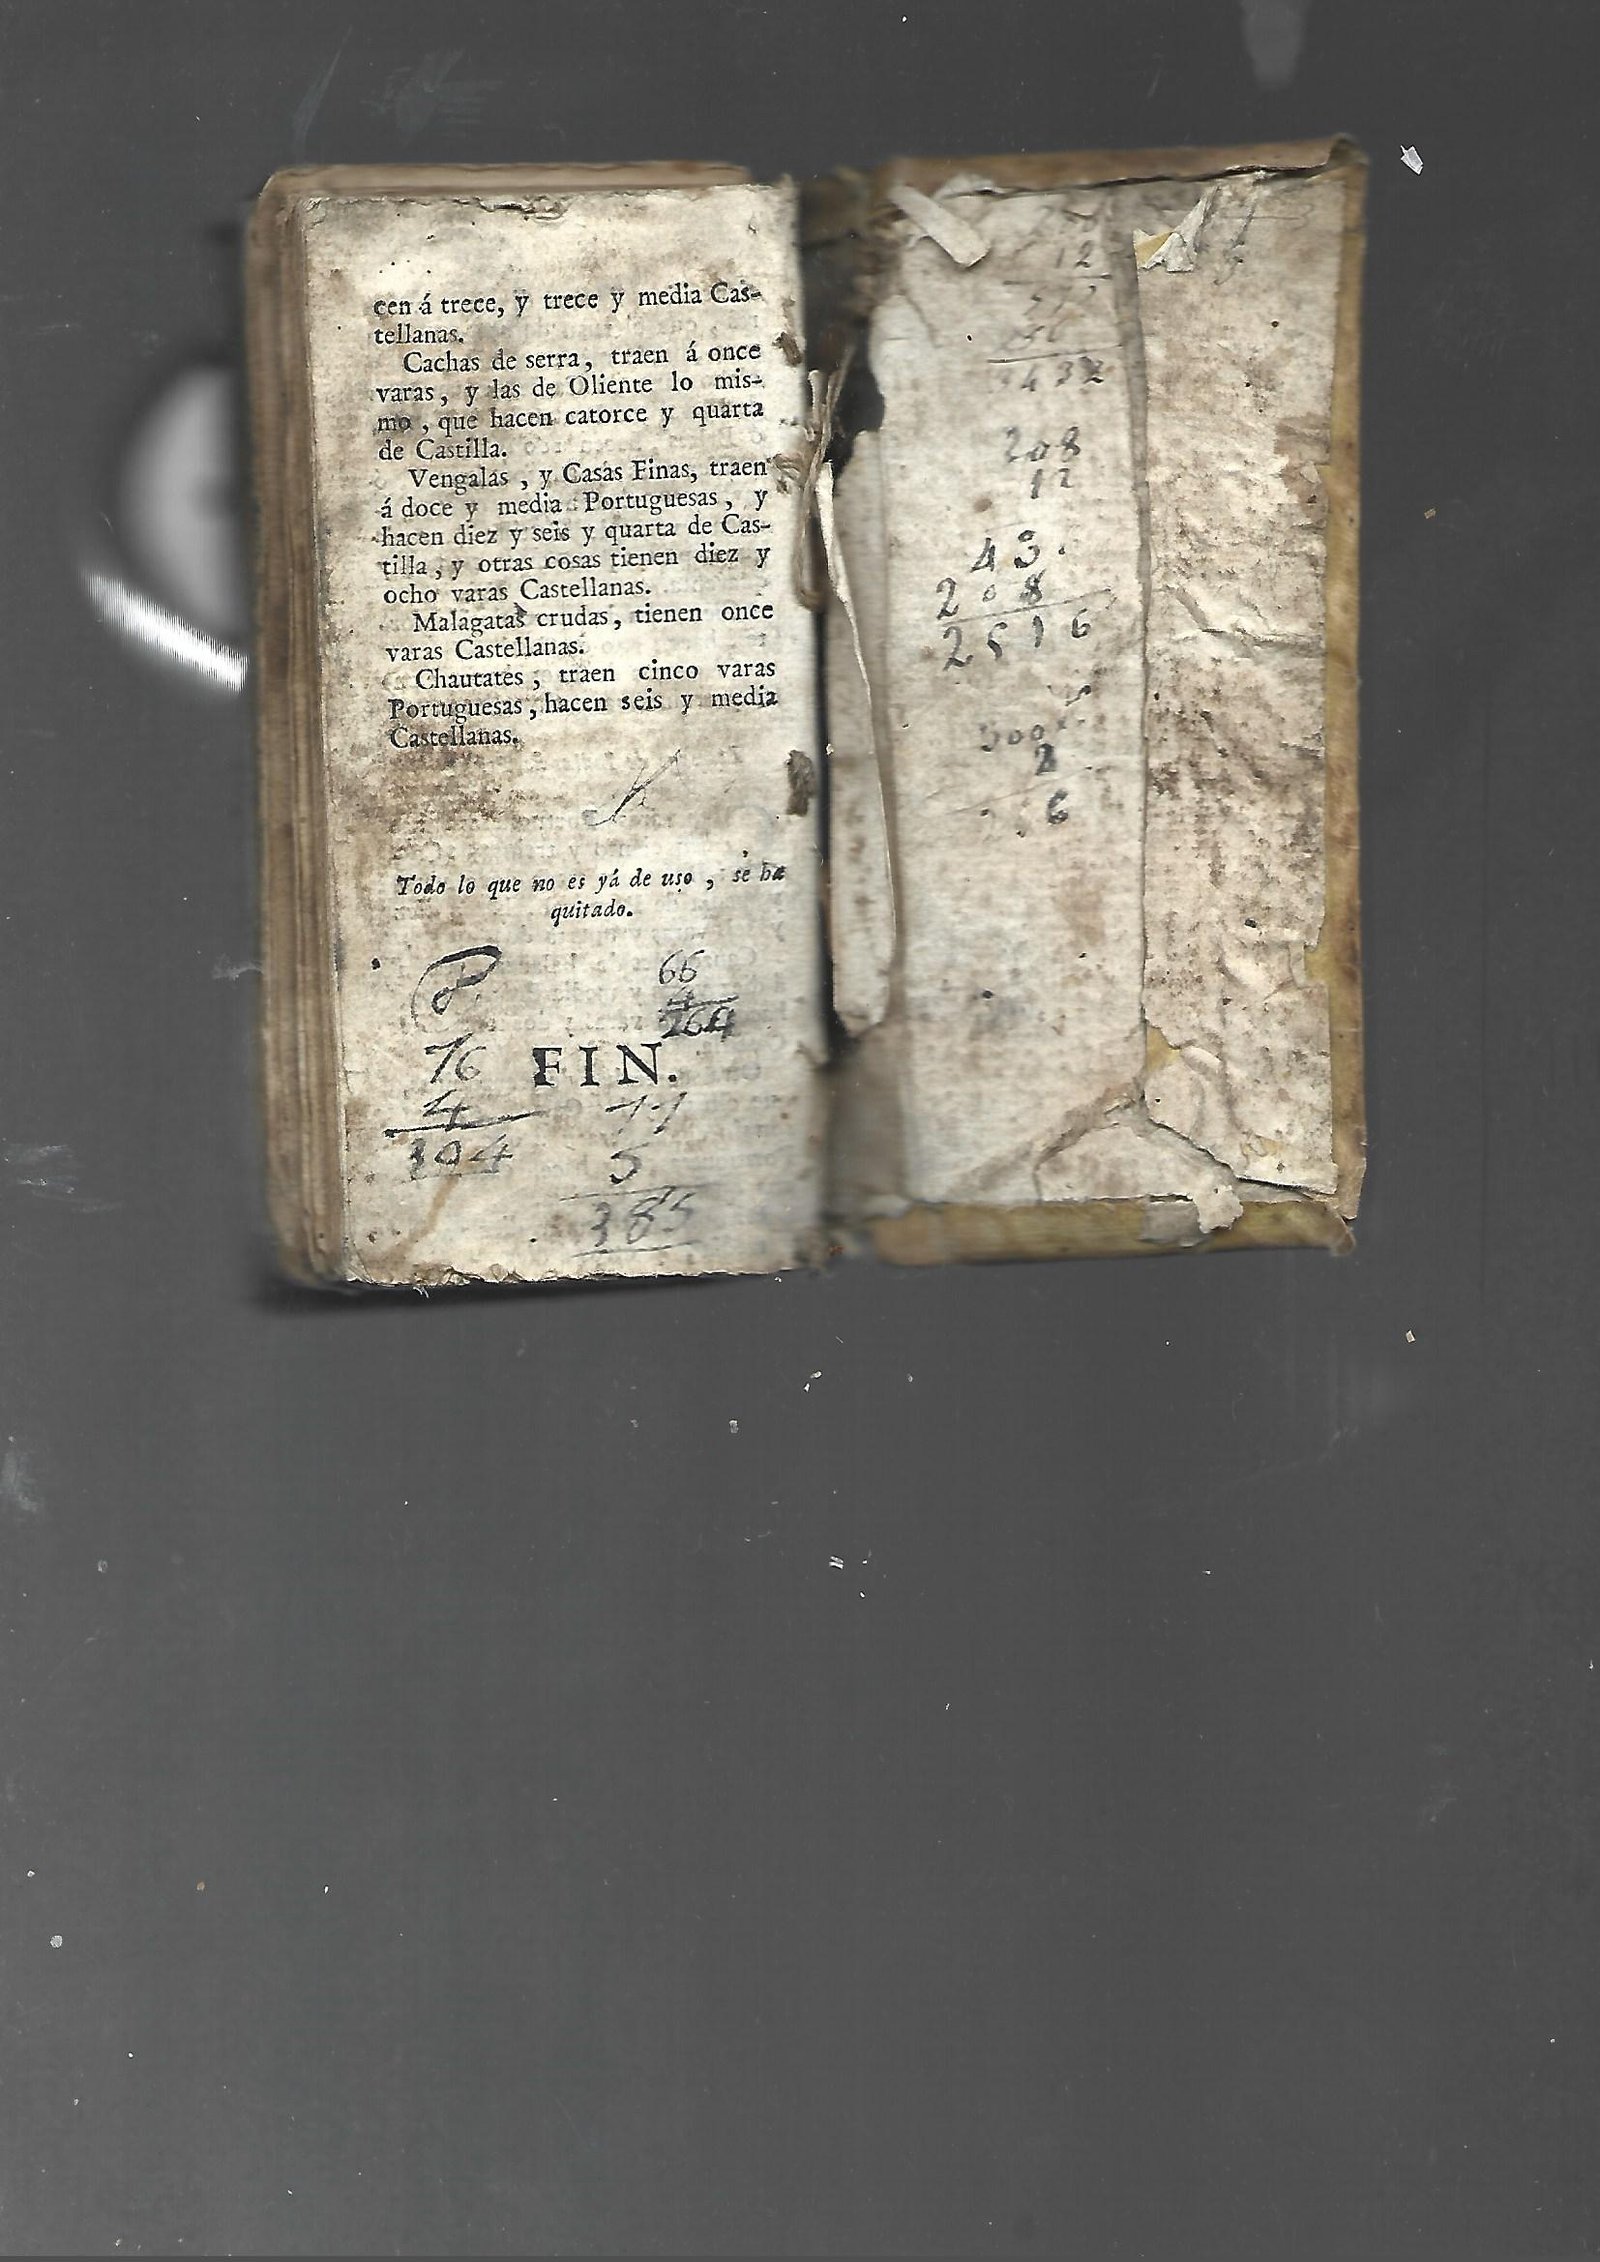 cen á trece, y trece y media Cas-
tellanas.
Cachas de serra, traen á once
varas, y las de Oliente lo mis-
mo, que hacen catorce y quarta
de Castilla.
Vengalas, y Casas Finas, traen
á doce y media Portuguesas, y
hacen diez y seis y quarta de Cas-
tilla, y otras cosas tienen diez y
ocho varas Castellanas.
Malagatas crudas, tienen once
varas Castellanas.
Chautates, traen cinco varas
Portuguesas, hacen seis y media
Castellanas.
Todo lo que no es yá de uso, se ha
quitado.
66
4
264
76
FIN.
4
77
304
5
385
12
432
208
12
43
208
2516
300
2
6